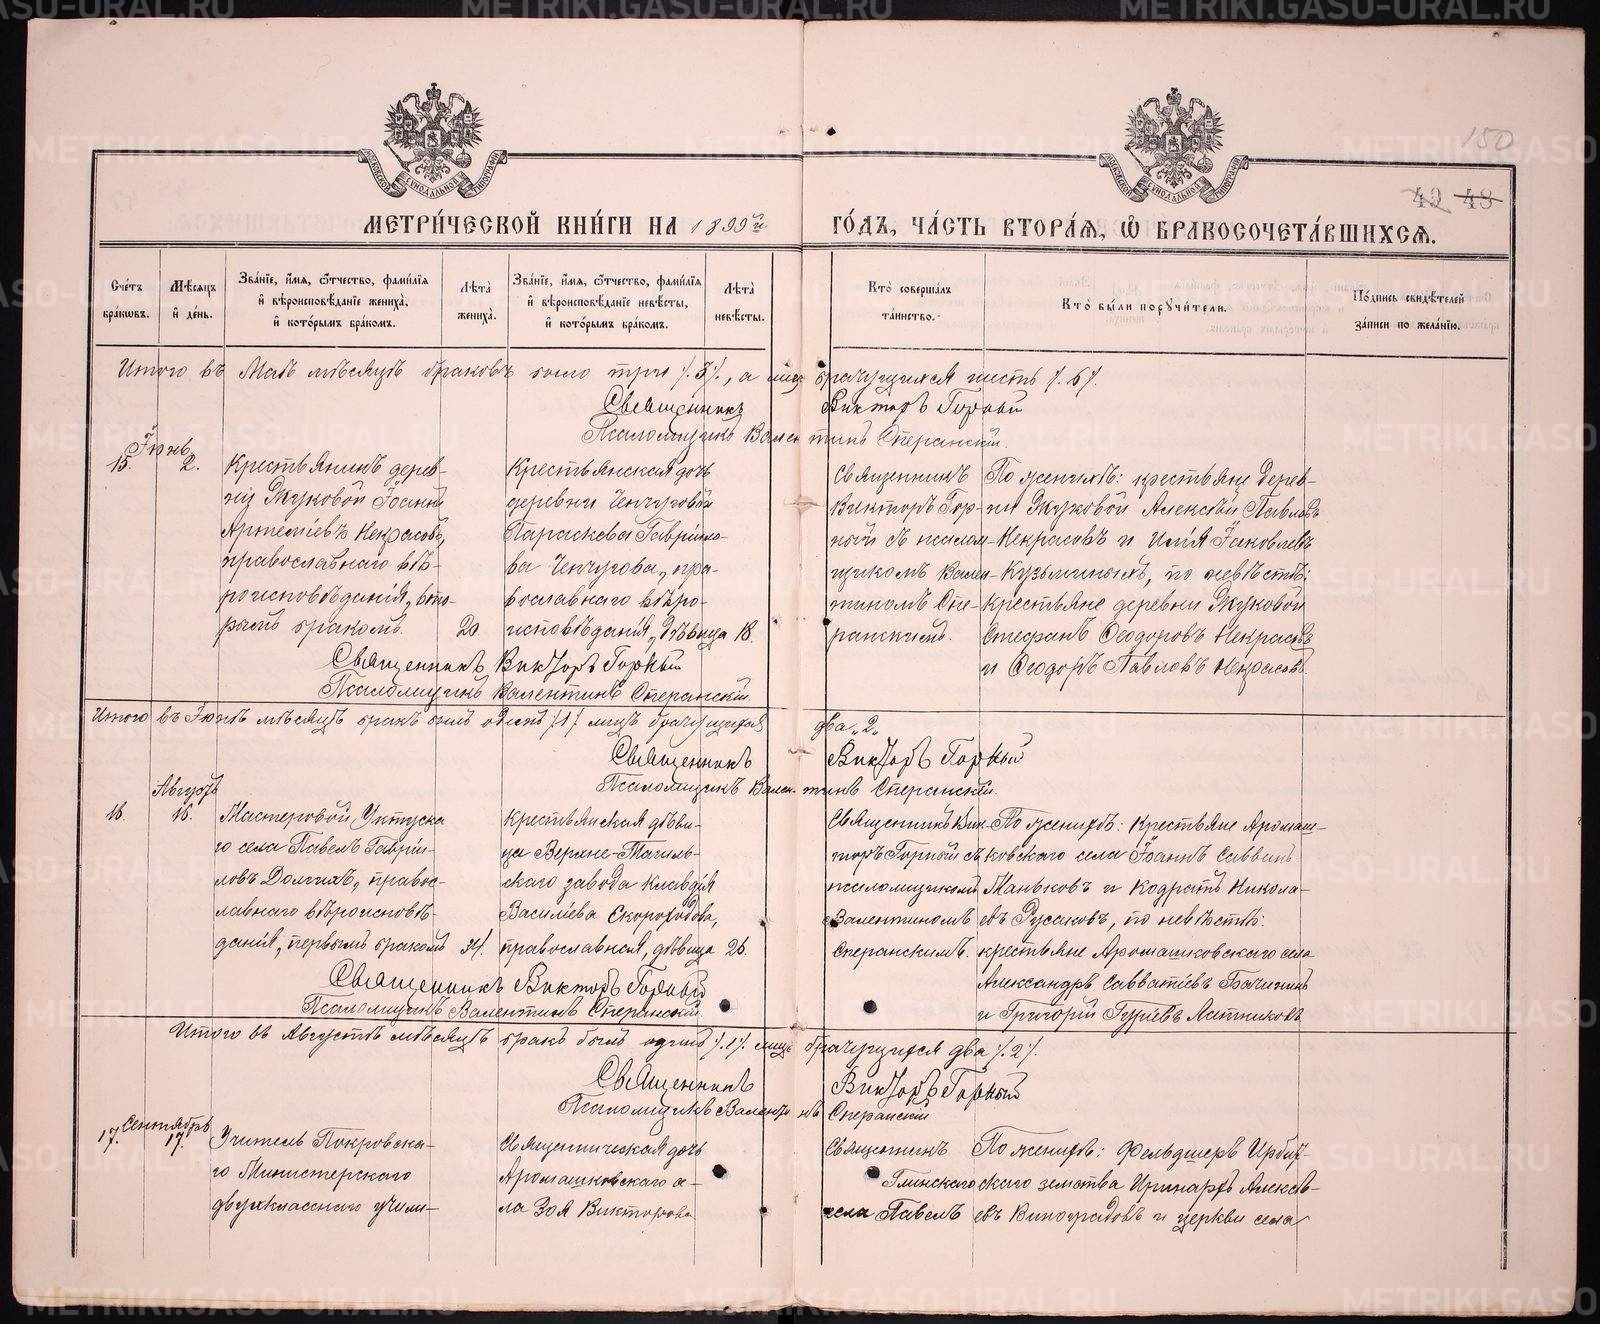 150
42 43
МЕТРИ́ЧЕСКОЙ КНИ́ГИ НА 1899й
ГО́ДЪ, ЧА́СТЬ ВТОРА́Я, Ѽ БРАКОСОЧЕТА́ВШИХСЯ.
Сче́тъ бра́ковъ.
Мѣ́сяцъ и҆ день.
Зва́нїе, и҆́мя, ѻ҆́тчество, фами́лїя
и҆ вѣроисповѣ́данїе жениха̀,
и҆ кото́рымъ бра́комъ.
Лѣ́та жениха̀.
Зва́нїе, и҆́мя, ѻ҆́тчество, фами́лїя
и҆ вѣроисповѣ́данїе невѣ́сты,
и҆ кото́рымъ бра́комъ.
Лѣ́та невѣ́сты.
Кто̀ соверша́лъ та́инство.
Кто̀ бы́ли порꙋчи́тели.
По́дпись свидѣ́телей за́писи по жела́нїю.
Итого въ Маѣ мѣсяцѣ браковъ было три /.3/., а лицъ брачущихся шесть /.6/.
Священникъ Викторъ Горный
Псаломщикъ Валентинъ Сперанскій.
Іюнь
15. 2.
Крестьянинъ дерев-
ни Жуковой Іоаннъ
Артеміевъ Некрасовъ,
православнаго вѣ-
роисповѣданія, вто-
рымъ бракомъ. 20.
Крестьянская дочь
деревни Ченчуговой
Параскева Гаврило-
ва Ченчугова, пра-
вославнаго вѣро-
исповѣданія, дѣвица 18.
Священникъ
Викторъ Гор-
ный съ псалом-
щикомъ Вален-
тиномъ Спе-
ранскимъ.
По женихѣ: крестьяне дерев-
ни Жуковой Алексѣй Павловъ
Некрасовъ и Илія Іаковлевъ
Кузьминыхъ, по невѣстѣ:
крестьяне деревни Жуковой
Стефанъ Ѳеодоровъ Некрасовъ
и Ѳеодоръ Павловъ Некрасовъ.
Священникъ Викторъ Горный
Псаломщикъ Валентинъ Сперанскій.
Итого въ Іюнѣ мѣсяцѣ бракъ былъ одинъ /1/ лицъ брачущихся два „2„
Священникъ Викторъ Горный
Псаломщикъ Валентинъ Сперанскій.
Августъ
16. 16.
Мастеровой Уктуска-
го села Павелъ Гаврі-
ловъ Долгихъ, правос-
лавнаго вѣроисповѣ-
данія, первымъ бракомъ 34.
Крестьянская дѣви-
ца Верхне-Тагиль-
скаго завода Клавдія
Васильева Скороходова,
православная, дѣвица 26.
Священникъ Вик-
торъ Горный съ
псаломщикомъ
Валентиномъ
Сперанскимъ.
По женихѣ: Крестьяне Арамаш-
ковскаго села Іоаннъ Саввинъ
Маньковъ и Кодратъ Никола-
евъ Русаковъ, по невѣстѣ:
крестьяне Арамашковскаго села
Александръ Савватіевъ Бачининъ
и Григорій Гуріевъ Латниковъ
Священникъ Викторъ Горный
Псаломщикъ Валентинъ Сперанскій.
Итого въ Августѣ мѣсяцѣ бракъ былъ одинъ /.1/. лицъ брачущихся два /.2/.
Священникъ Викторъ Горный
Псаломщикъ Валентинъ Сперанскій
Сентябрь
17. 17.
Учитель Покровска-
го Министерскаго
двухкласснаго учили-
Священническая дочь
Арамашковскаго се-
ла Зоя Викторова
Священникъ
Глинскаго
села Павелъ
По женихѣ: Фельдшеръ Ирбит-
скаго земства Иринархъ Алексѣ-
евъ Виноградовъ и церкви села
METRIKI.GASO-URAL.RU